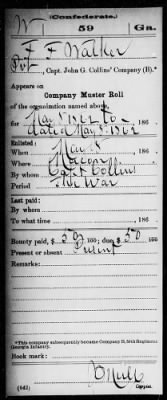 (Confederate.)
W 59 Ga.
F F Walker
Pvt, Capt. John G. Collins' Company (B).*
Appears on
Company Muster Roll
of the organization named above,
for May 8 1862 to 186 .
dated May 8 1862
Enlisted:
When May 8, 186 .
Where Macon
By whom Capt Collins
Period The War
Last paid:
By whom
To what time , 186 .
Bounty paid, $ 50 /100; due $ 50 /100
Present or absent Present
Remarks:
*This company subsequently became Company D, 59th Regiment
Georgia Infantry.
Book mark:
(642) Copyist.